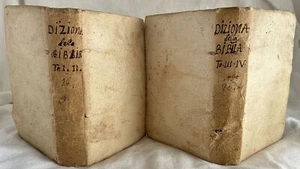 DIZIONA
della
BIBBIA
To. I. II.
DIZIONA
della
BIBBIA
To. III. IV.